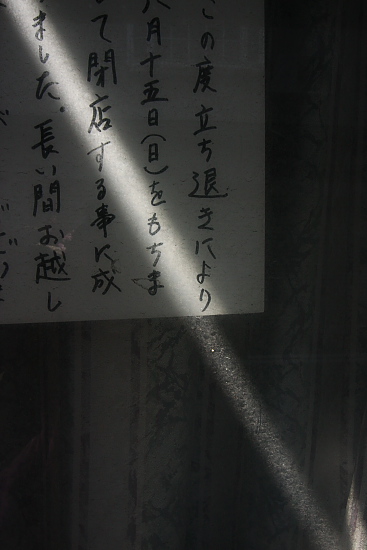 この度立ち退きにより
八月十五日(日)をもちま
して閉店する事に成
ました。長い間お越し